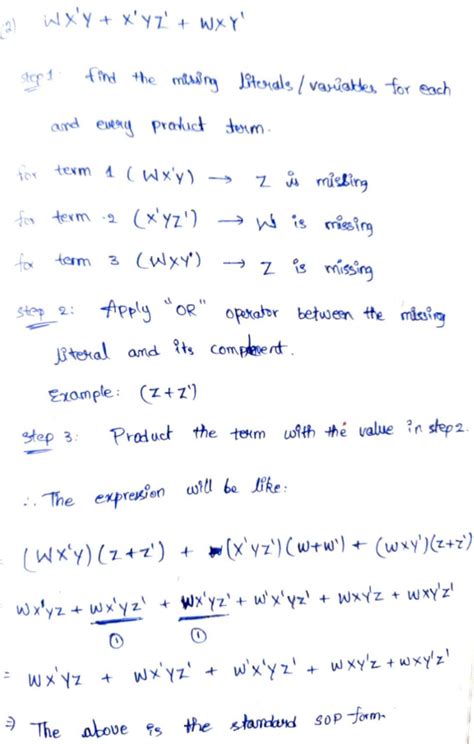 2) WX'Y + X'YZ' + WXY'
step 1: find the missing literals/variables for each
and every product term.
for term 1 (WX'Y) → Z is missing
for term 2 (X'YZ') → W is missing
for term 3 (WXY') → Z is missing
step 2: Apply "OR" operator between the missing
literal and its complement.
Example: (Z+Z')
step 3: Product the term with the value in step 2.
∴ The expression will be like:
(WX'Y)(Z+Z') + (X'YZ')(W+W') + (WXY')(Z+Z')
WX'YZ + WX'YZ' + WX'YZ' + W'X'YZ' + WXY'Z + WXY'Z'
① ①
= WX'YZ + WX'YZ' + W'X'YZ' + WXY'Z + WXY'Z'
⇒ The above is the standard SOP form.